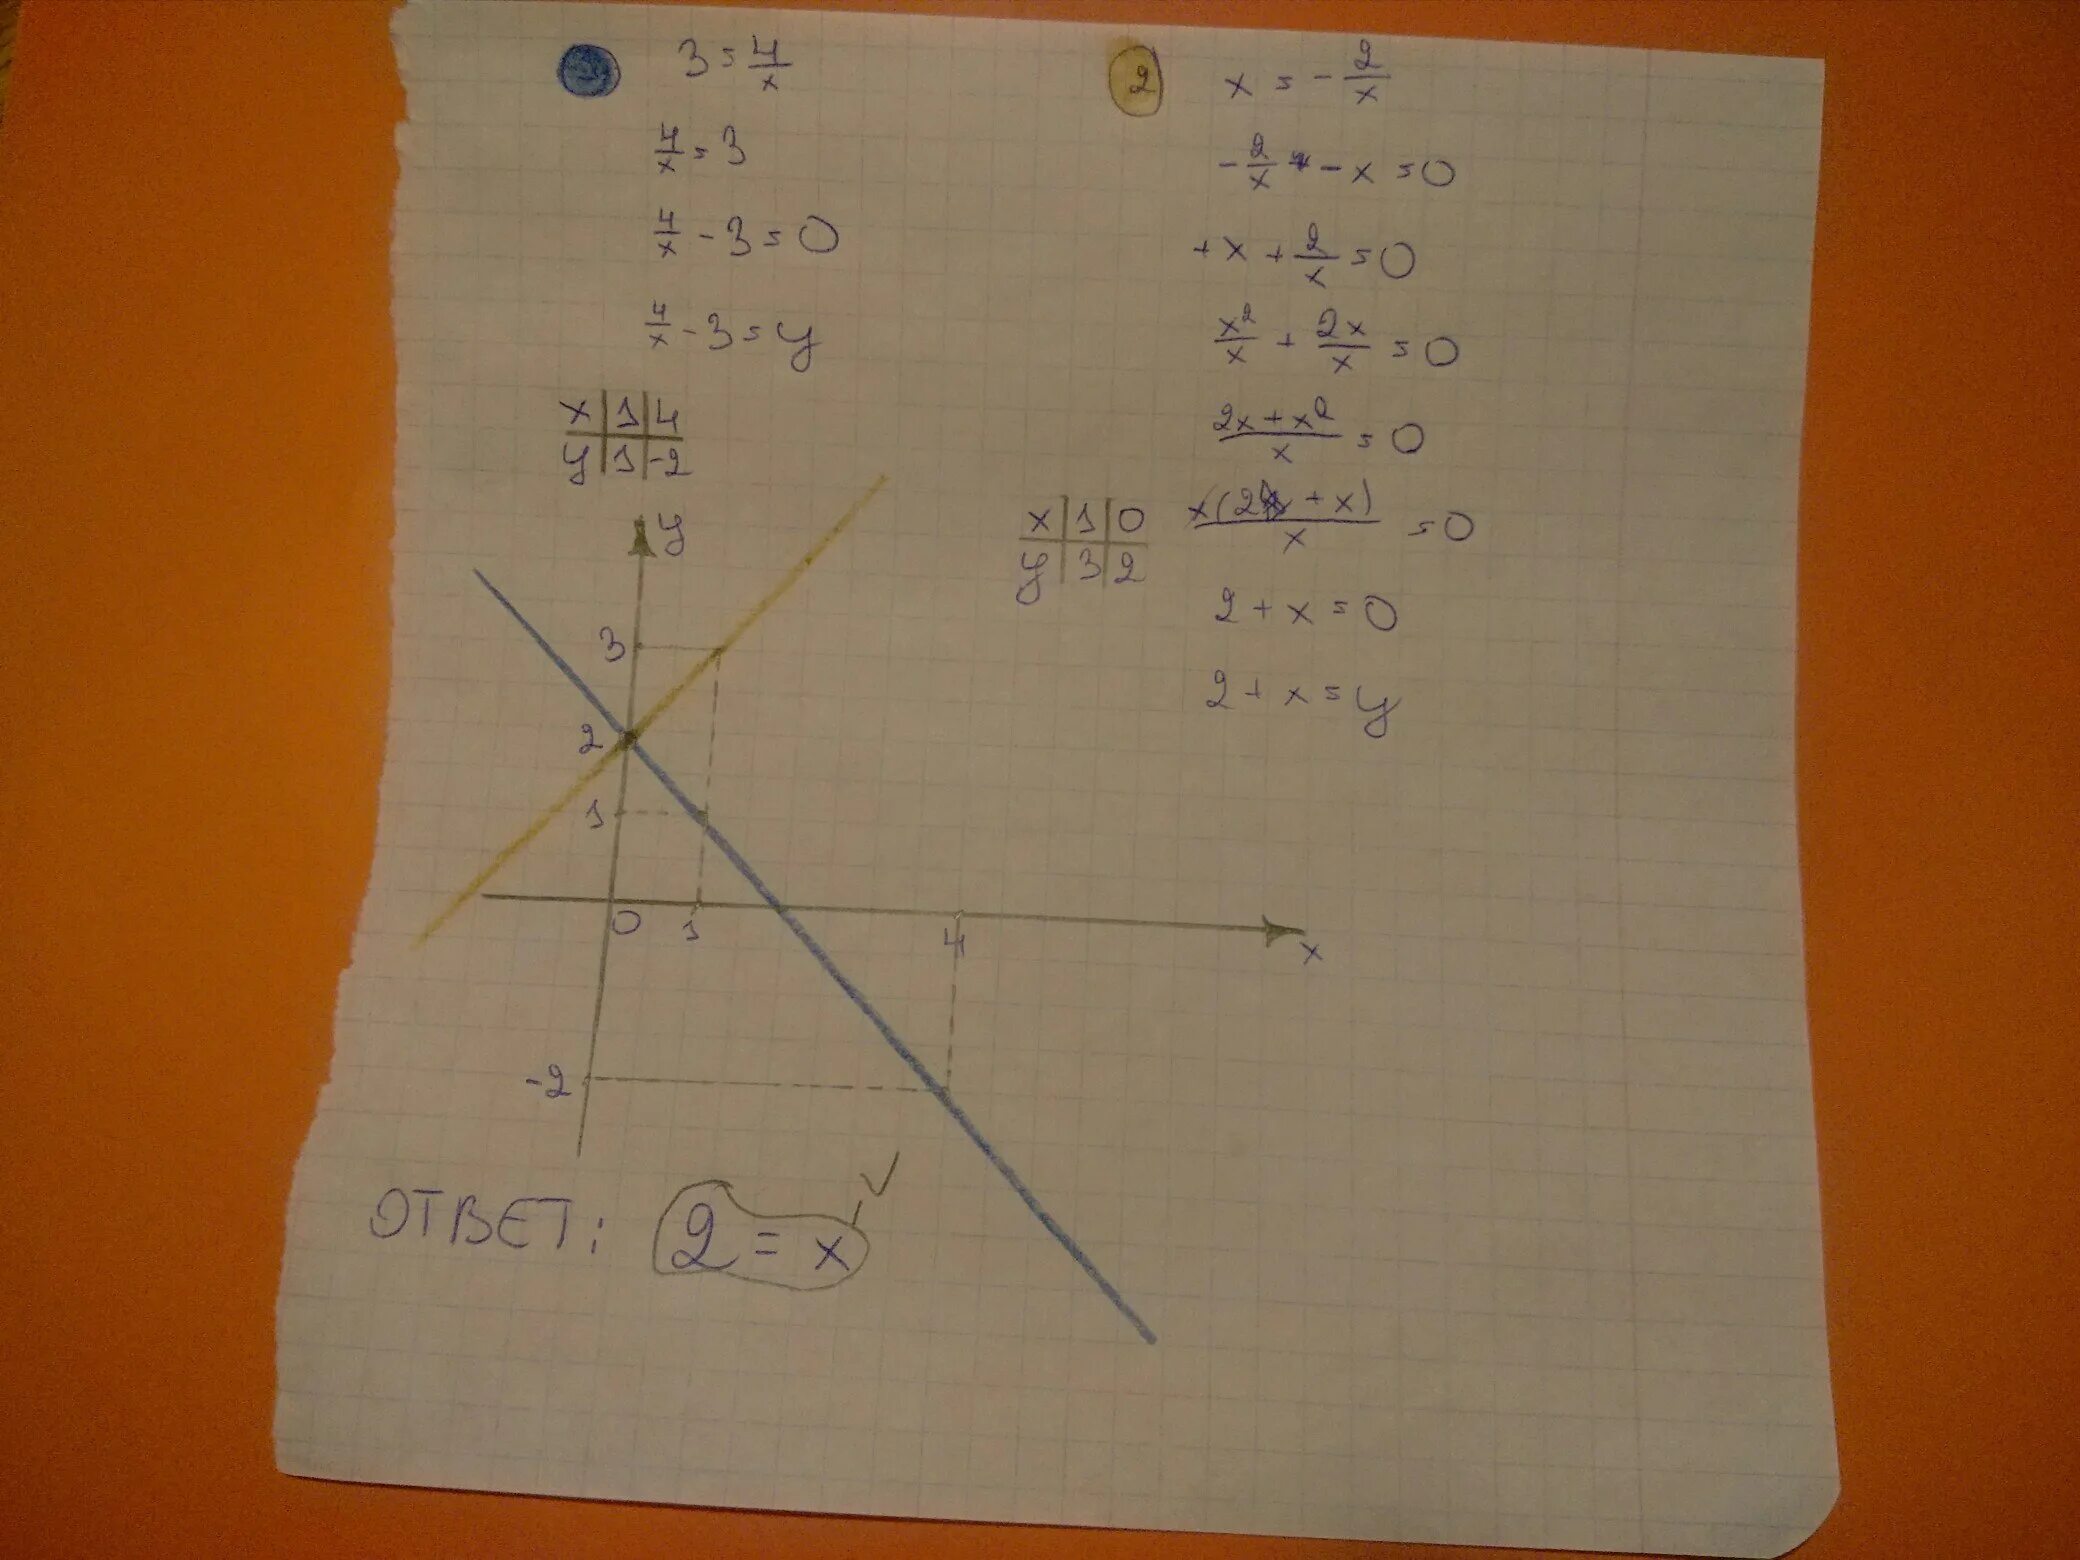 3 = 4/x
4/x = 3
4/x - 3 = 0
4/x - 3 = y
x | 1 | 4
y | 1 | -2
2
x = - 2/x
- 2/x - x = 0
+ x + 2/x = 0
x²/x + 2x/x = 0
2x + x²/x = 0
x(2 + x)/x = 0
2 + x = 0
2 + x = y
x | 1 | 0
y | 3 | 2
y
3
2
1
0 1 4 x
-2
ОТВЕТ: 2 = x